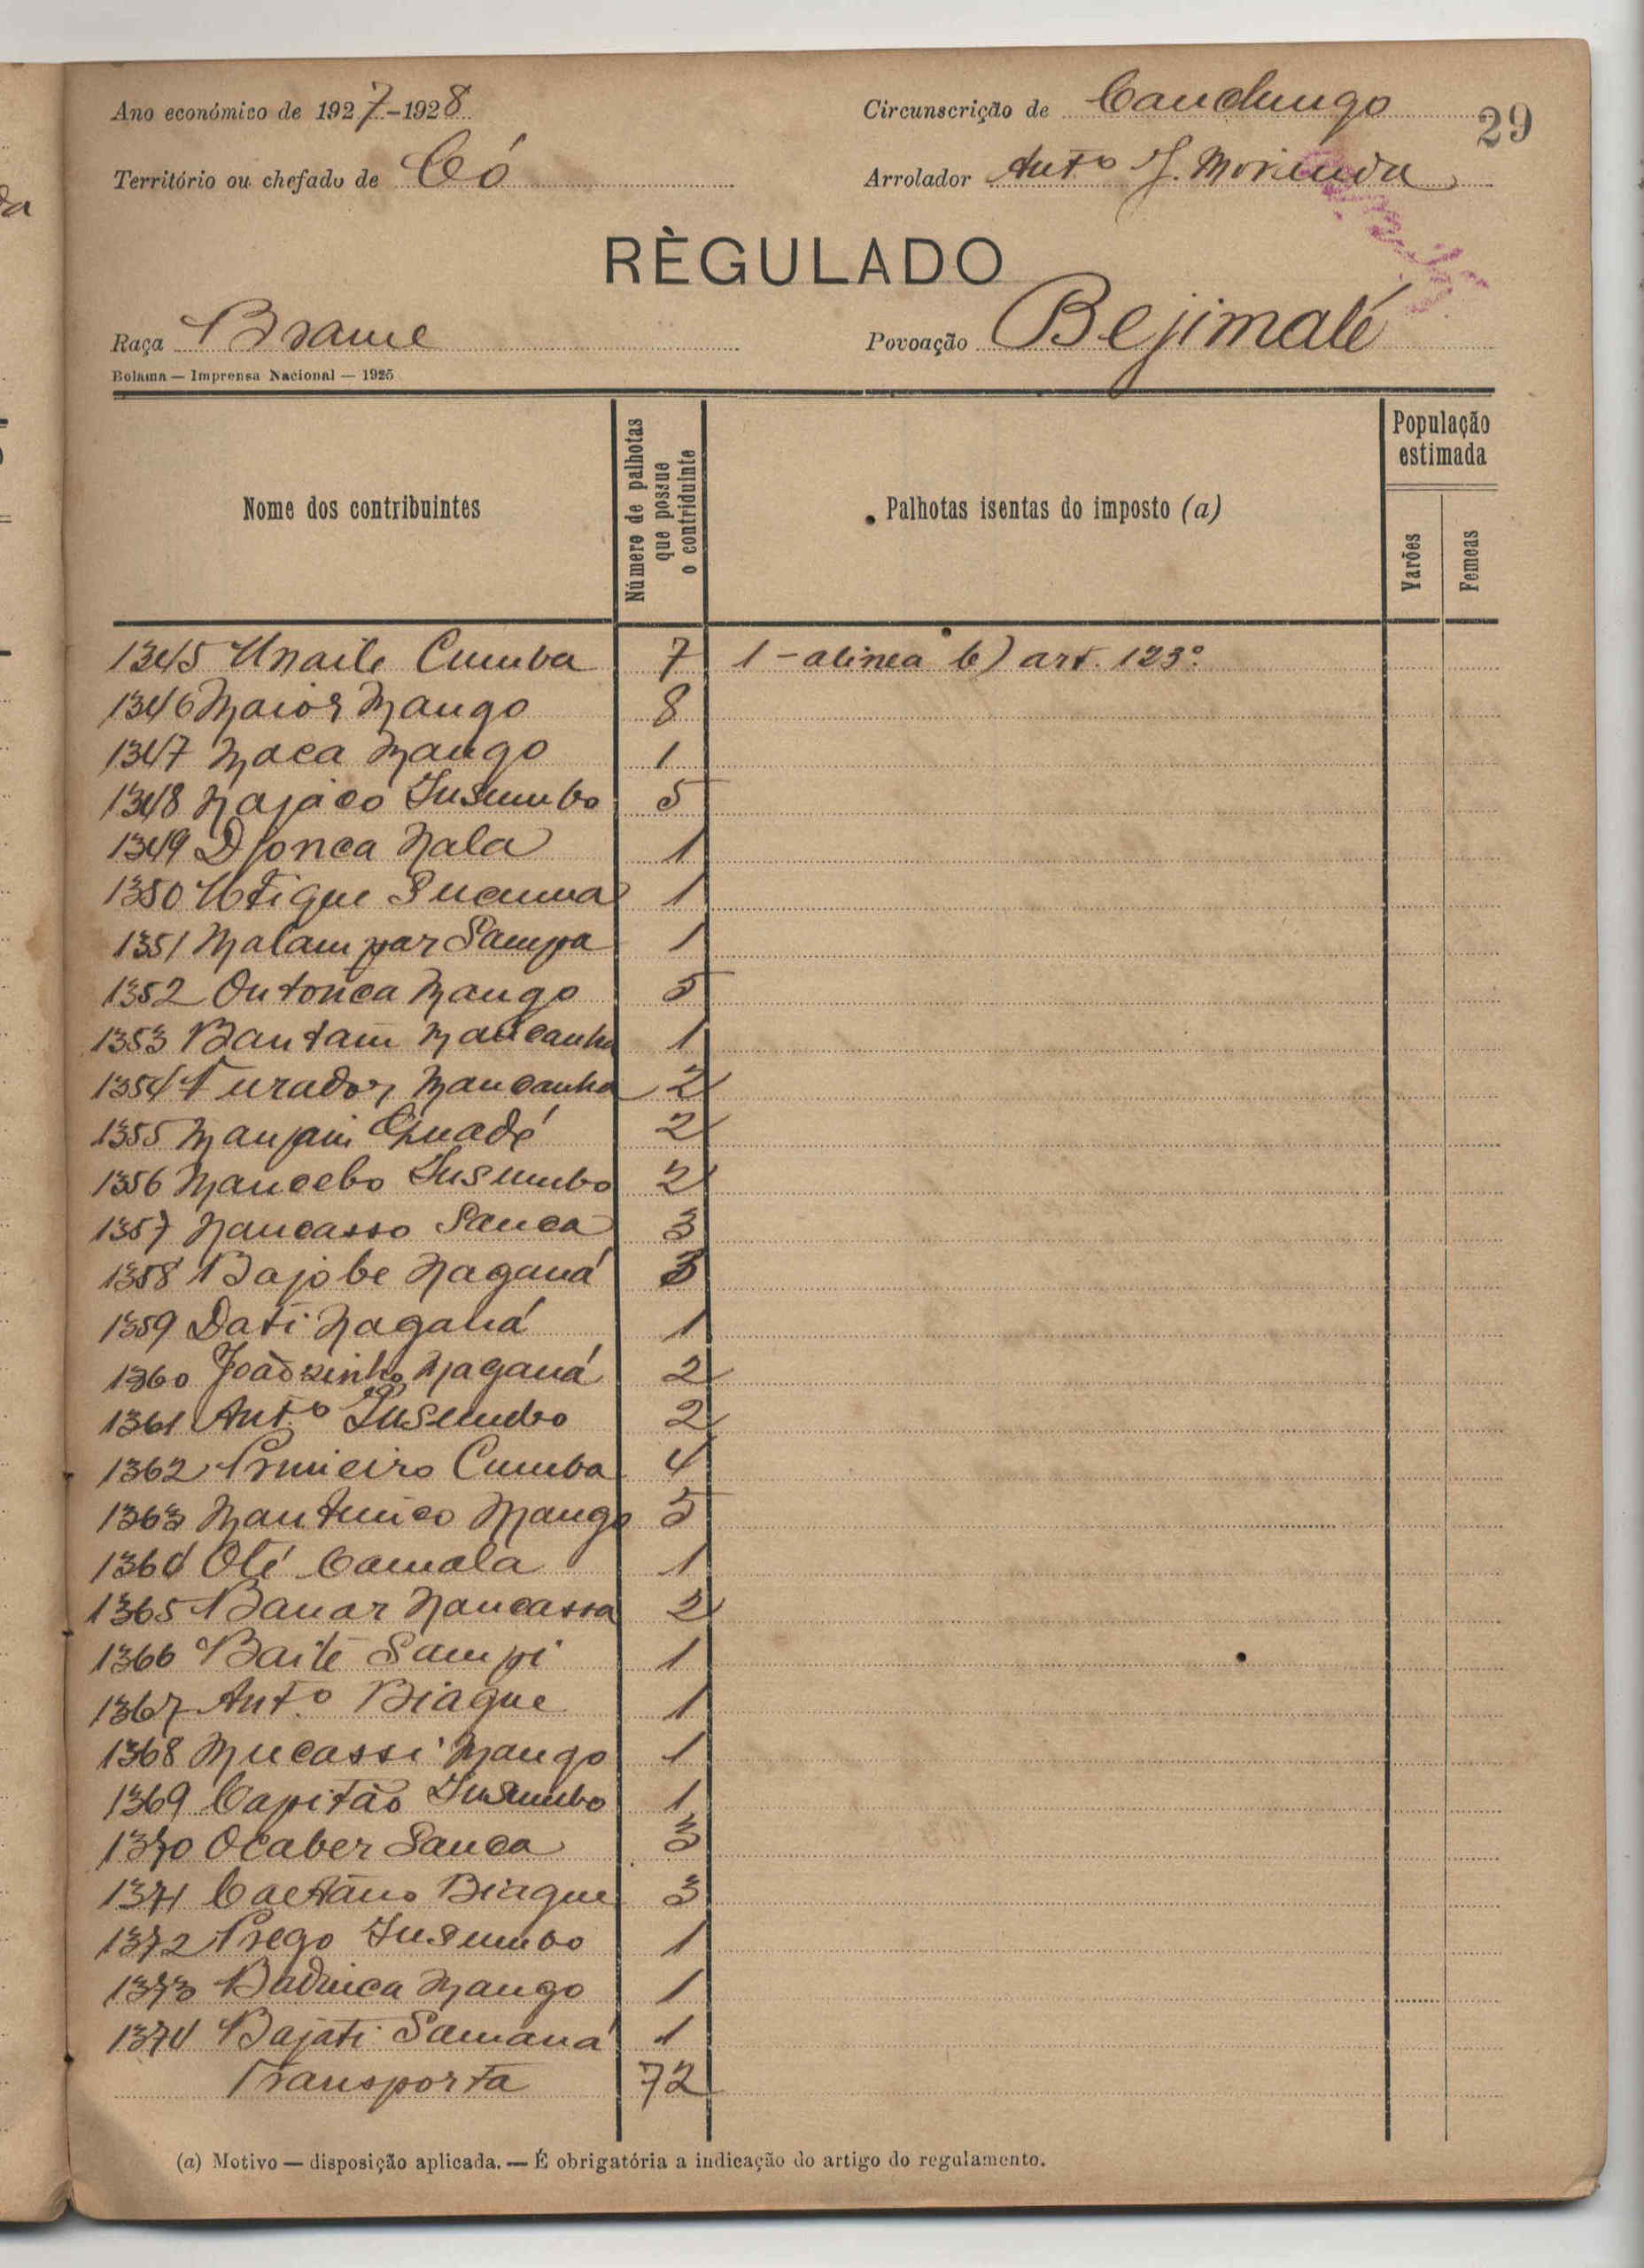 Ano económico de 1927-1928
Circunscrição de Canchungo
29
Território ou chefado de Có
Arrolador Antº J. Morenda
RÈGULADO
Raça Brame
Povoação Bejimalé
Bolama — Imprensa Nacional — 1925
Nome dos contribuintes
Número de palhotas que possue o contriduinte
Palhotas isentas do imposto (a)
População estimada
Varões
Femeas
1345 Unaile Cumba 7 1 - alinea b) art. 123º
1346 Maior Mango 8
1347 Maca Mango 1
1348 Najacó Insumbo 5
1349 Djonca Nala 1
1350 Utique 1
1351 Malam par Sampa 1
1352 Ontonca Mango 5
1353 Bantam Mancanha 1
1354 Furador Mancanha 2
1355 Manjam Quadé 2
1356 Mancebo Insumbo 2
1357 Nancasso Sanca 3
1358 Bajobe Naganá 3
1359 Dati Naganá 1
1360 Joãosinho Naganá 2
1361 Antº Insumbo 2
1362 Primeiro Cumba 4
1363 Mantunco Mango 5
1364 Olé Camala 1
1365 Banar Nancassa 2
1366 Baité Sampi 1
1367 Antº Biague 1
1368 Mucassi Mango 1
1369 Capitão Insumbo 1
1370 Ocaber Sanca 3
1371 Caetano Biague 3
1372 Prego Insumbo 1
1373 Baduica Mango 1
1374 Bajati Samaná 1
Transporta 72
(a) Motivo — disposição aplicada. — É obrigatória a indicação do artigo do regulamento.